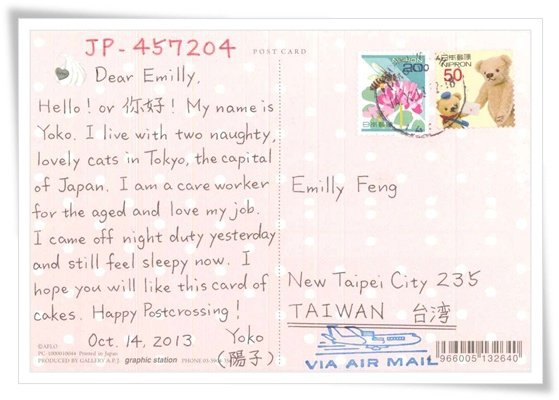 JP-457204
POST CARD
Dear Emilly,
Hello! or 你好! My name is
Yoko. I live with two naughty,
lovely cats in Tokyo, the capital
of Japan. I am a care worker
for the aged and love my job.
I came off night duty yesterday
and still feel sleepy now. I
hope you will like this card of
cakes. Happy Postcrossing!
Oct. 14, 2013 Yoko
(陽子)
©AFLO
PC-1000010044 Printed in Japan
PRODUCED BY GALLERY A.P.J. graphic station PHONE 03-59
日本郵便
NIPPON
日本郵便
50
NIPPON
Emilly Feng
New Taipei City 235
TAIWAN 台湾
VIA AIR MAIL
966005 132640